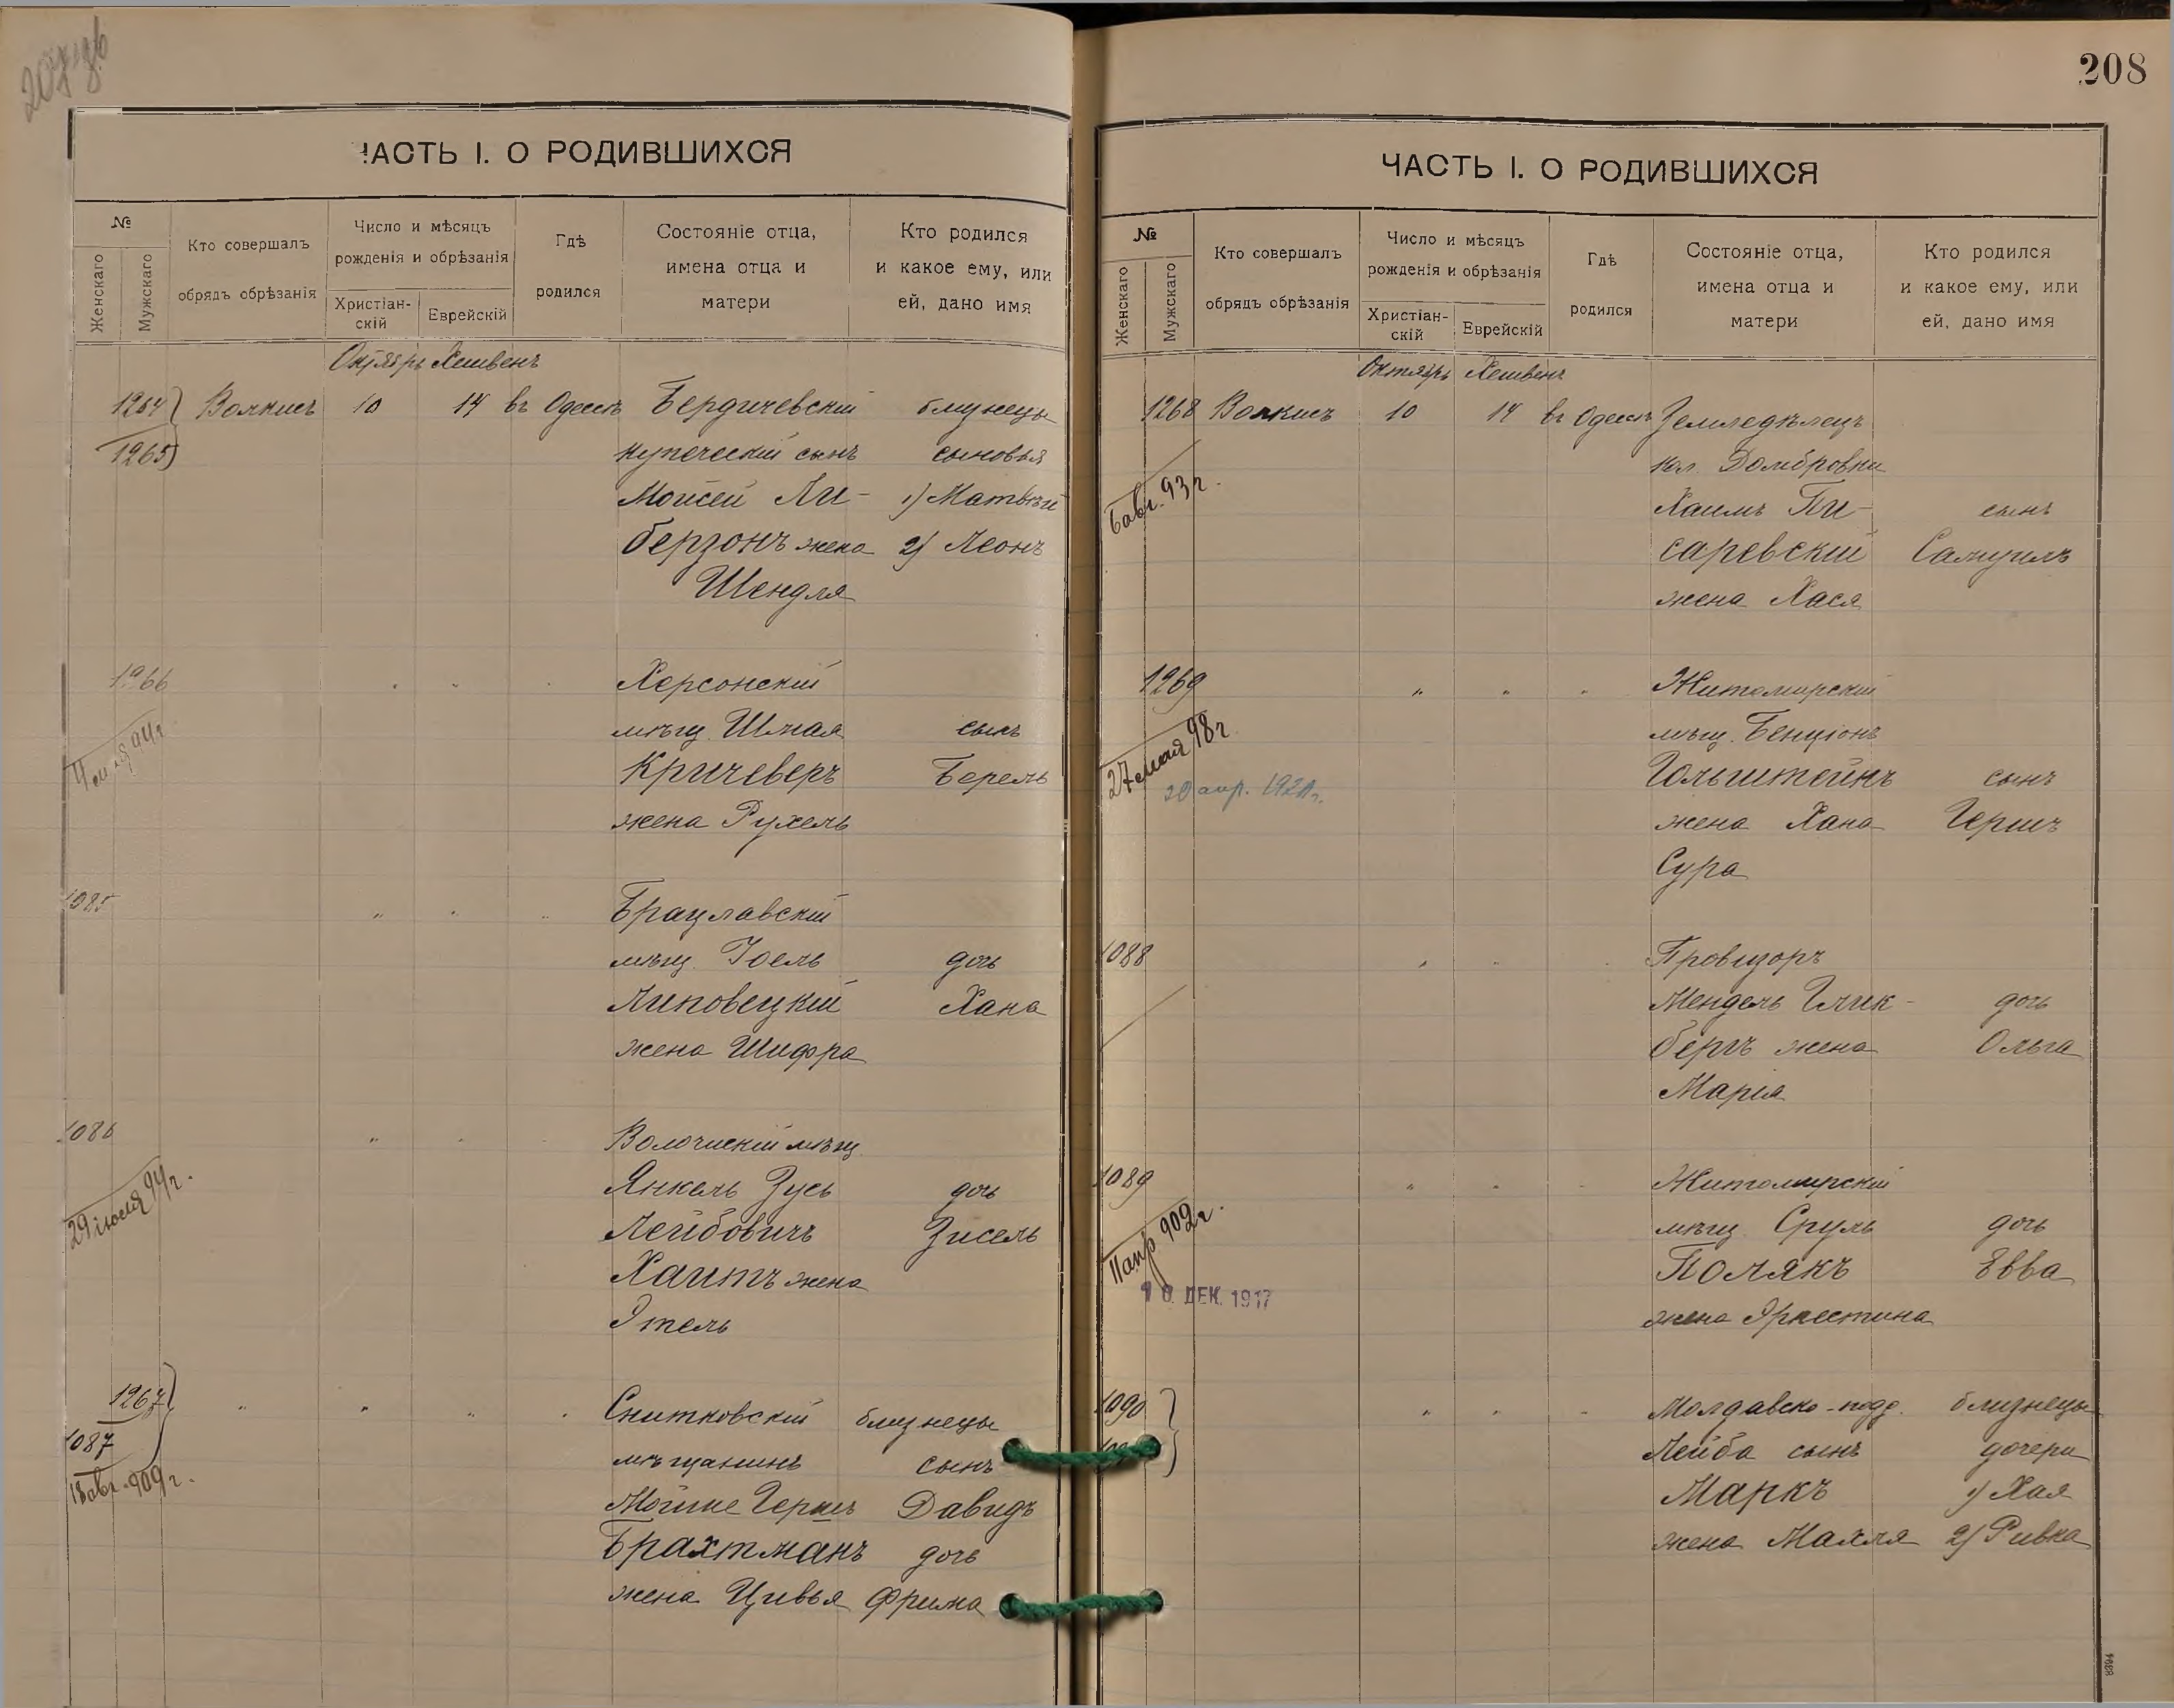 ЧАСТЬ I. О РОДИВШИХСЯ
№
Женскаго
Мужскаго
Кто совершалъ
обрядъ обрѣзанія
Число и мѣсяцъ
рожденія и обрѣзанія
Христіан-
скій
Еврейскій
Гдѣ
родился
Состояніе отца,
имена отца и
матери
Кто родился
и какое ему, или
ей, дано имя
Октябрь Хешвенъ
1264 Волкисъ 10 14 въ Одессѣ Бердичевскій близнецы
1265 купеческій сынъ сыновья
Мойсей Ли- 1) Матвѣй
берзонъ жена 2) Леонъ
Шендля
1266 Херсонскій
мѣщ. Шмая сынъ
Кричеверъ Берель
жена Рухель
1085 " " " Брацлавскій
мѣщ. Іоель дочь
Липовецкій Хана
жена Шифра
1086 " " " Волочискій мѣщ.
29 іюля 94 г.
Янкель Зусь дочь
Лейбовичъ Зисель
Хаитъ жена
Этель
1267 " " " " Снитковскій близнецы
1087
18 авг. 909 г.
мѣщанинъ сынъ
Мойше Гершъ Давидъ
Брахтманъ дочь
жена Цивья Фрима
208
ЧАСТЬ I. О РОДИВШИХСЯ
№
Женскаго
Мужскаго
Кто совершалъ
обрядъ обрѣзанія
Число и мѣсяцъ
рожденія и обрѣзанія
Христіан-
скій
Еврейскій
Гдѣ
родился
Состояніе отца,
имена отца и
матери
Кто родился
и какое ему, или
ей, дано имя
Октябрь Хешвенъ
1268 Волкисъ 10 14 въ Одессѣ Земледѣлецъ
6 авг. 93 г.
кол. Домбровки
Хаимъ Пи- сынъ
саревскій Самуилъ
жена Хася
1269 " " " Житомирскій
27 мая 98 г.
20 апр. 192 г.
мѣщ. Бенціонъ
Гольштейнъ сынъ
жена Хана Гершъ
Сура
1088 " " " Провизоръ
Мендель Глик- дочь
бергъ жена Ольга
Марія
1089 " " " Житомирскій
11 апр 902 г.
ДЕК. 1917
мѣщ. Сруль дочь
Полякъ Евва
жена Эрнестина
1090 " " " Молдавско-подд. близнецы
Лейба сынъ дочери
Маркъ 1) Хая
жена Махля 2) Ривка